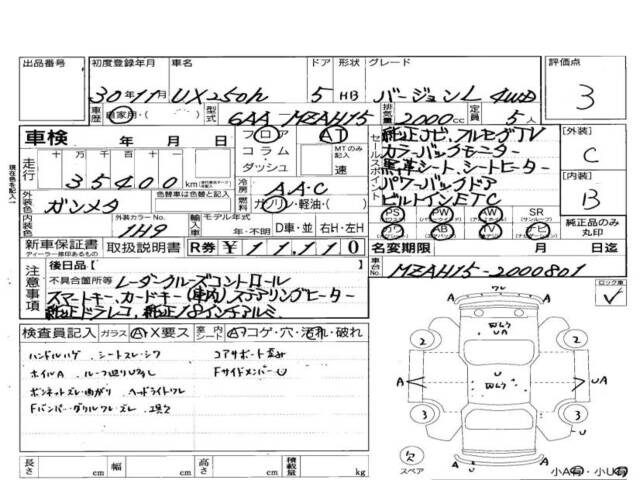 出品番号 初度登録年月 車名 ドア 形状 グレード 評価点
30年11月 UX250h 5 HB バージョンL 4WD 3
車歴 自家用・( ) 型式 6AA MZAH15 排気量 2000cc 定員 5人
車検 年 月 日
走行 十万 万 千 百 十 一
35400 km
フロア AT
コラム MTのみ記入
ダッシュ 速
セールスポイント
純正ナビ、フルセグTV
カラーバックモニター
黒革シート、シートヒーター
パワーバックドア
ビルトインETC
[外装]
C
[内装]
B
現在色を記入
外装色 ガンメタ
色替車は色替前の色( )
冷房 AAC
燃料 ガソリン・軽油・( )
内装色 外装カラーNo. 1H9
輸入車 モデル年式 年・不明 D車・並 右H・左H
PS PW AW SR(サンルーフ)
カワ AB TV ナビ
純正品のみ丸印
新車保証書 取扱説明書 R券 ¥11,110
ディーラー捺印あるもの
名変期限 年 月 日迄
車台No. MZAH15-2000801
注意事項
後日品[ ]
不具合箇所等
レーダークルーズコントロール
スマートキー、カードキー(車内)ステアリングヒーター
純正ドラレコ、純正18インチアルミ
ロック車
検査員記入 ガラス A・X要ス 室内シート A・コゲ・穴・汚れ・破れ
ハンドルハゲ、シートスレ・シワ コアサポート歪み
ホイルA、ルーフ廻りUヌイし FサイドメンバーU
ボンネットズレ・曲がり ヘッドライトワレ
Fバンパー・グリルワレ・ズレ、欠
ワレ
A
U
UA
2
2
3
3
欠
スペア
小A有・小U有
長さ cm 幅 cm 高さ cm 積載量 kg